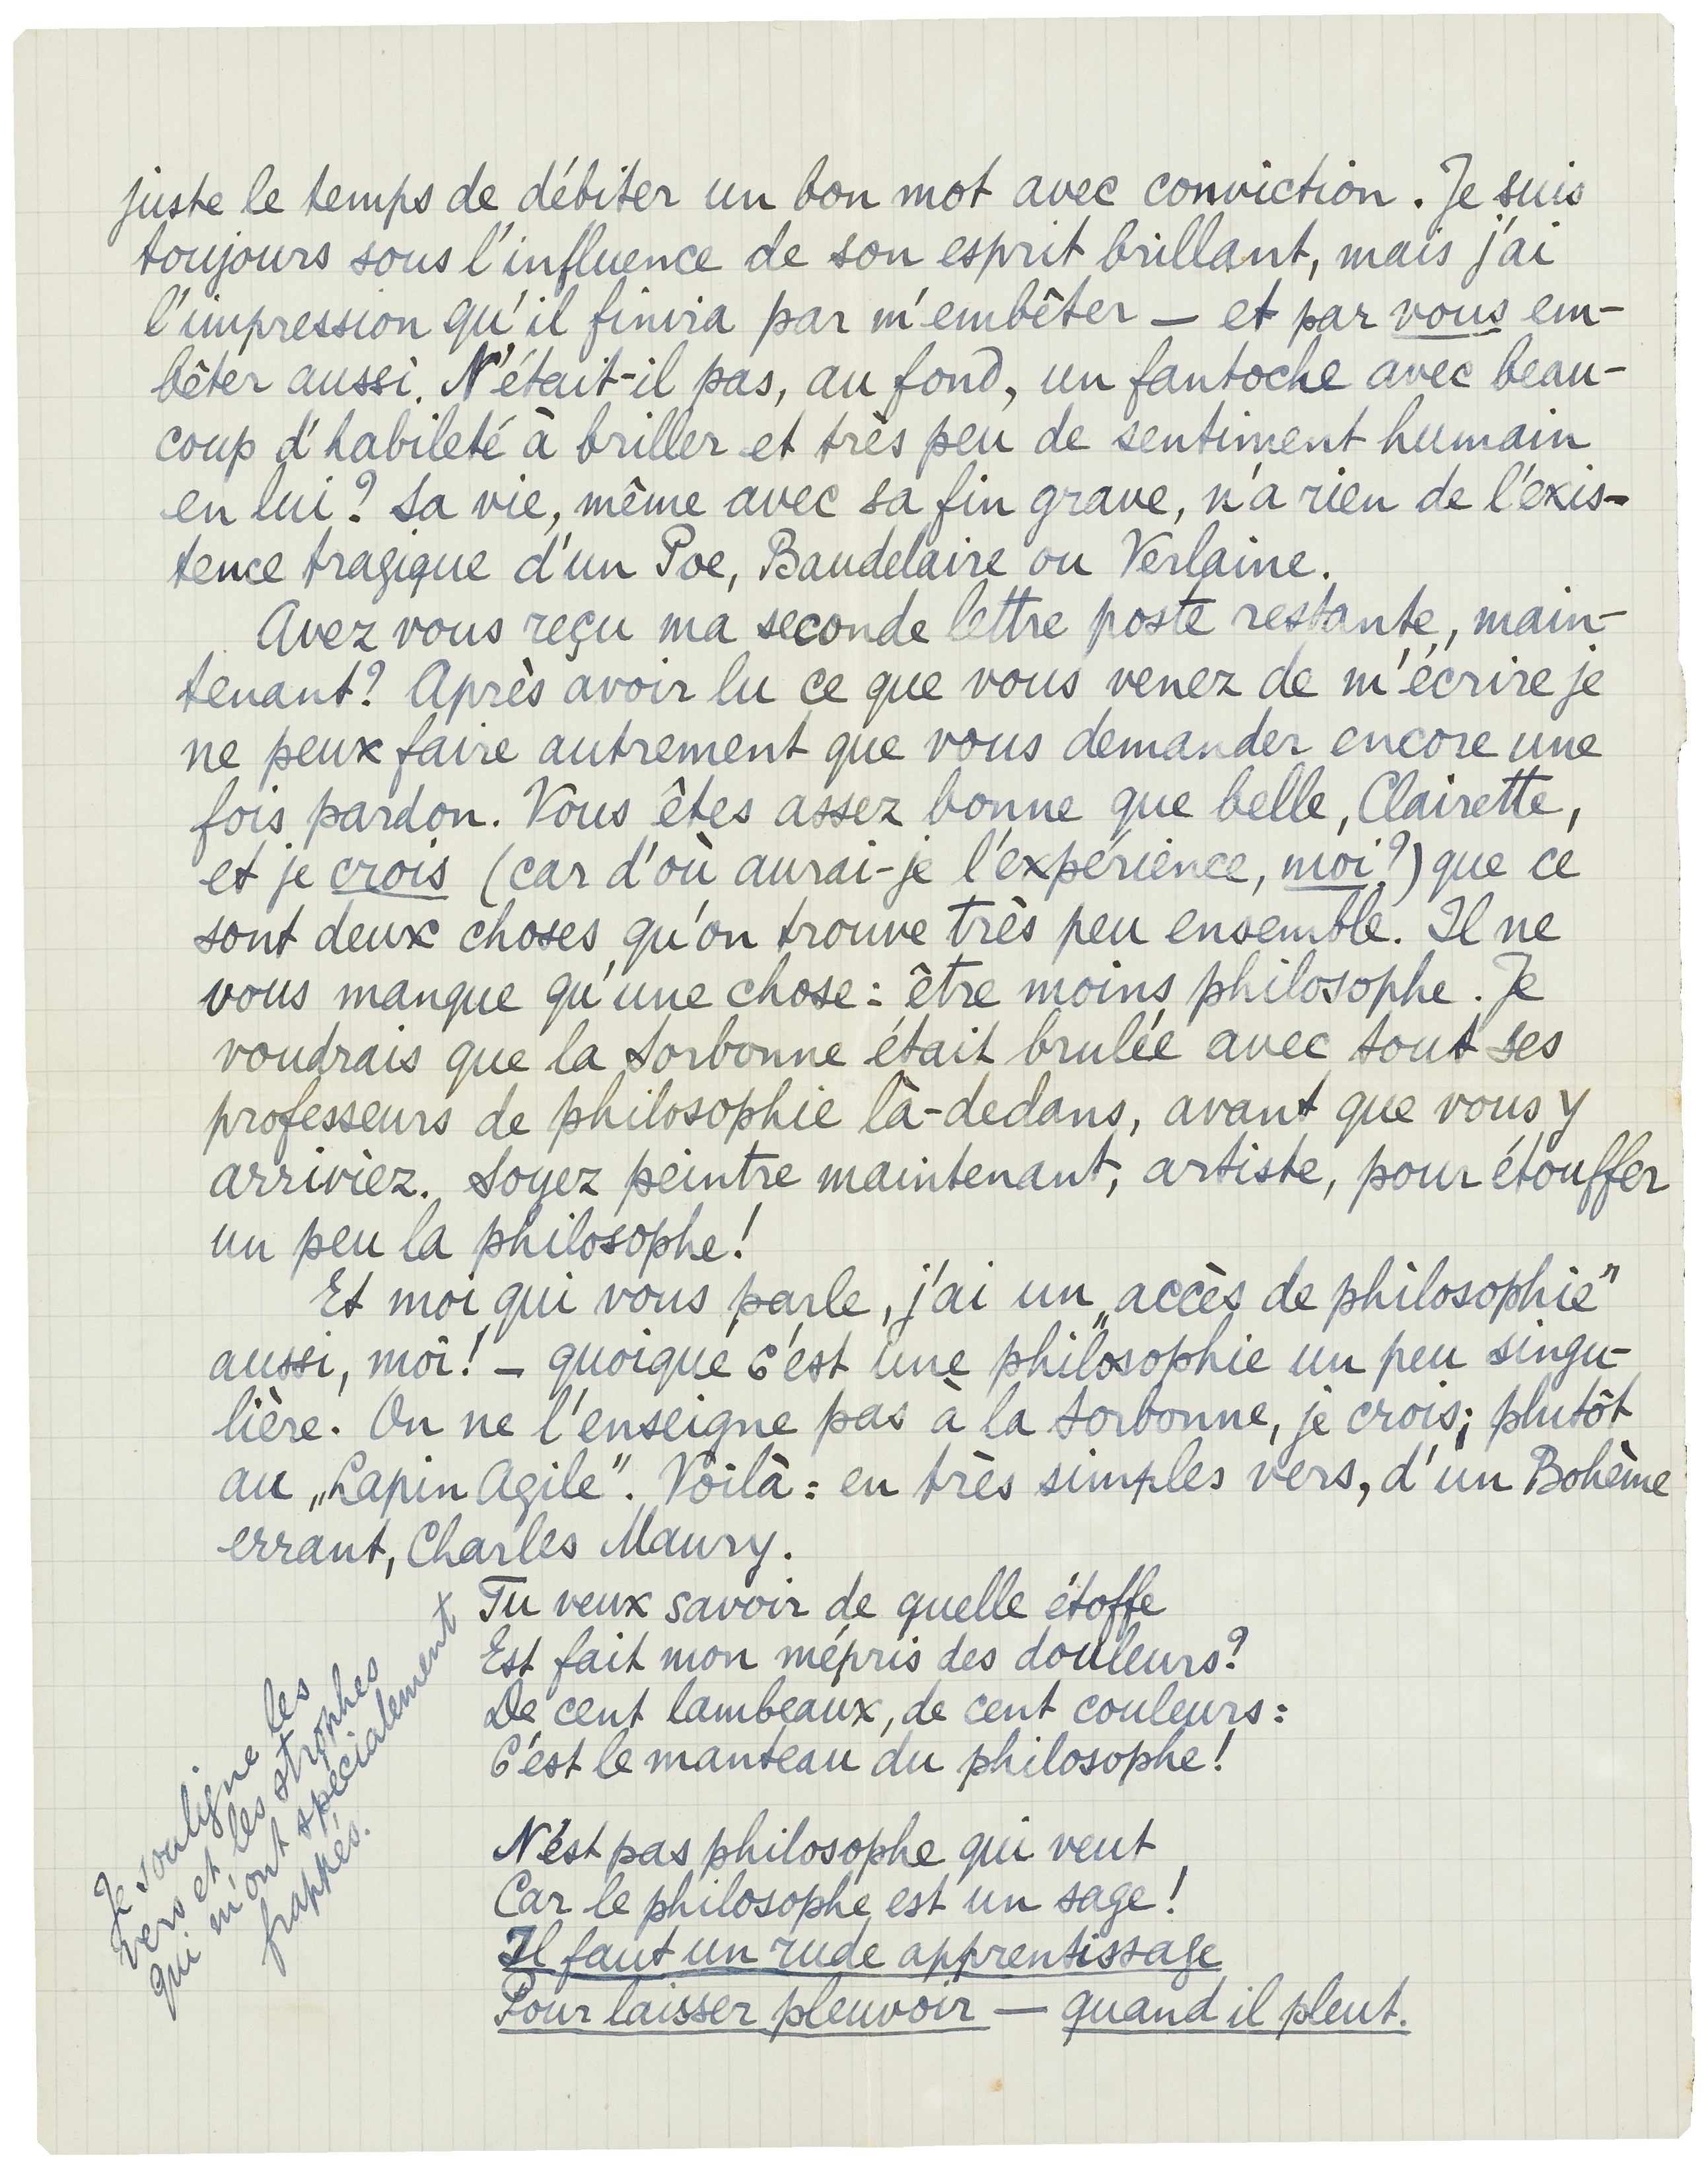 juste le temps de débiter un bon mot avec conviction. Je suis
toujours sous l'influence de son esprit brillant, mais j'ai
l'impression qu'il finira par m'embêter — et par vous em-
bêter aussi. N'était-il pas, au fond, un fantoche avec beau-
coup d'habileté à briller et très peu de sentiment humain
en lui? Sa vie, même avec sa fin grave, n'a rien de l'exis-
tence tragique d'un Poe, Baudelaire ou Verlaine.
Avez vous reçu ma seconde lettre poste restante, main-
tenant? Après avoir lu ce que vous venez de m'écrire je
ne peux faire autrement que vous demander encore une
fois pardon. Vous êtes assez bonne que belle, Clairette,
et je crois (car d'où aurai-je l'expérience, moi?) que ce
sont deux choses qu'on trouve très peu ensemble. Il ne
vous manque qu'une chose: être moins philosophe. Je
voudrais que la Sorbonne était brulée avec tout ses
professeurs de philosophie là-dedans, avant que vous y
arriviez. Soyez peintre maintenant, artiste, pour étouffer
un peu la philosophe!
Et moi qui vous parle, j'ai un „accès de philosophie"
aussi, moi! — quoique c'est une philosophie un peu singu-
lière. On ne l'enseigne pas à la Sorbonne, je crois; plutôt
au „Lapin Agile". Voilà: en très simples vers, d'un Bohème
errant, Charles Maury.
Tu veux savoir de quelle étoffe
Est fait mon mépris des douleurs?
De cent lambeaux, de cent couleurs:
C'est le manteau du philosophe!
N'est pas philosophe qui veut
Car le philosophe est un sage!
Il faut un rude apprentissage
Pour laisser pleuvoir — quand il pleut.
Je souligne les
vers et les strophes
qui m'ont spécialement
frappés.